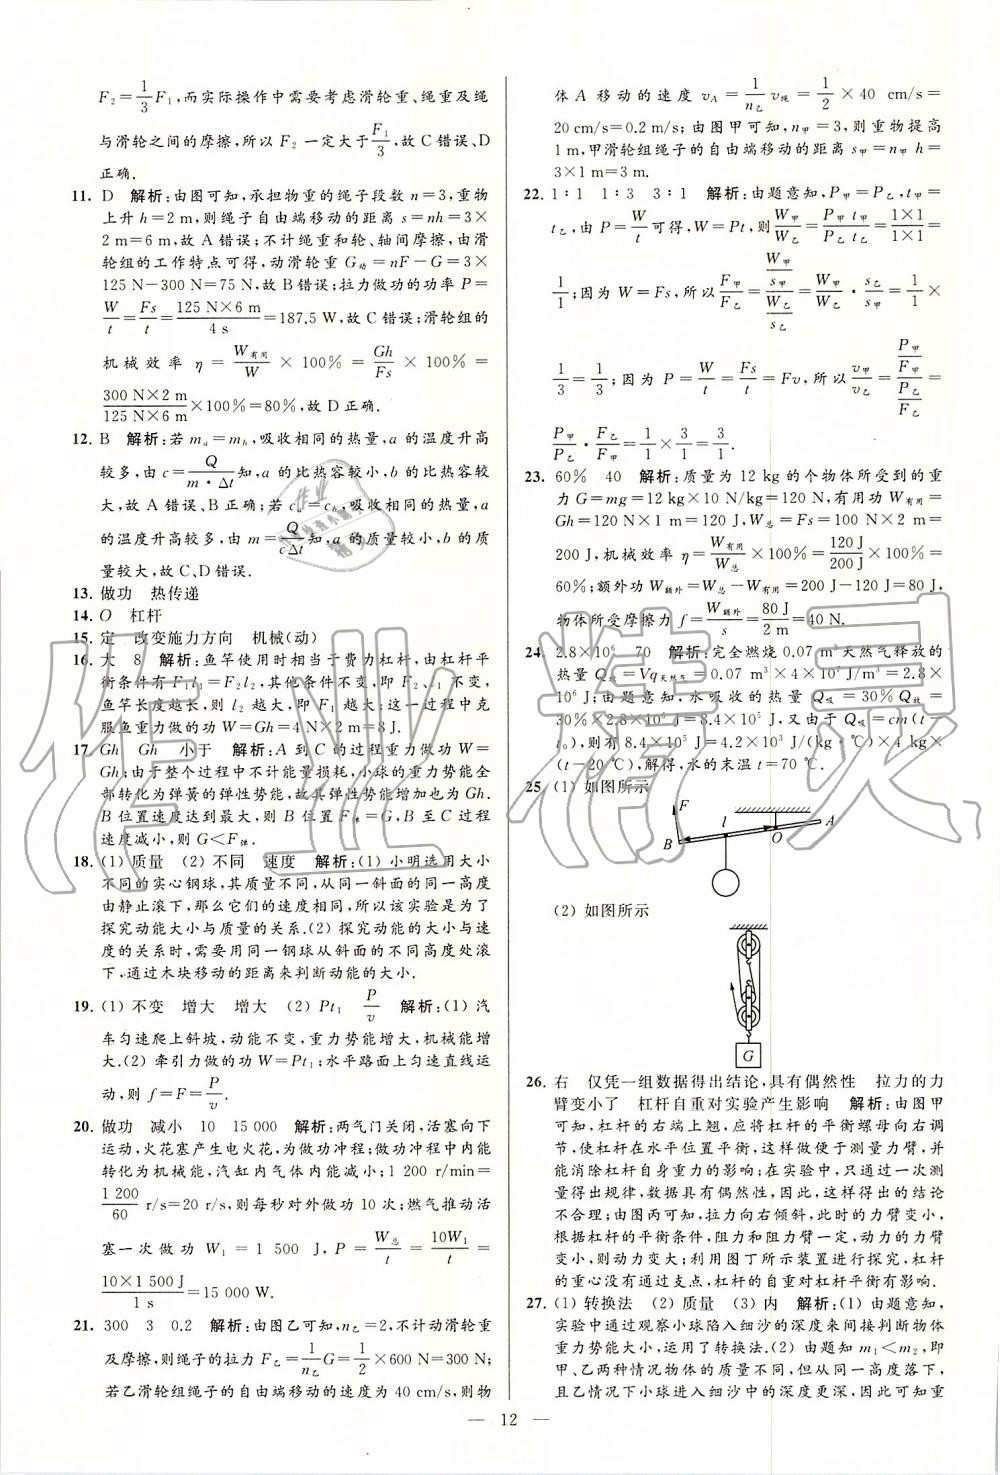 F₂=1/3F₁,而实际操作中需要考虑滑轮重、绳重及绳
与滑轮之间的摩擦,所以 F₂ 一定大于F₁/3,故 C 错误、D
正确.
11. D 解析:由图可知,承担物重的绳子段数 n=3,重物
上升 h=2 m,则绳子自由端移动的距离 s=nh=3×
2 m=6 m,故 A 错误;不计绳重和轮、轴间摩擦,由滑
轮组的工作特点可得,动滑轮重 G动=nF-G=3×
125 N-300 N=75 N,故 B 错误;拉力做功的功率 P=
W/t=Fs/t=125 N×6 m/4 s=187.5 W,故 C 错误;滑轮组的
机械效率 η=W有用/W×100%=Gh/Fs×100%=
300 N×2 m/125 N×6 m×100%=80%,故 D 正确.
12. B 解析:若 mₐ=m_b,吸收相同的热量,a 的温度升高
较多,由 c=Q/m·Δt知,a 的比热容较小,b 的比热容较
大,故 A 错误、B 正确;若 cₐ=c_b,吸收相同的热量,a
的温度升高较多,由 m=Q/cΔt知,a 的质量较小,b 的质
量较大,故 C、D 错误.
13. 做功 热传递
14. O 杠杆
15. 定 改变施力方向 机械(动)
16. 大 8 解析:鱼竿使用时相当于费力杠杆,由杠杆平
衡条件有 F₁l₁=F₂l₂,其他条件不变,即 F₂、l₁ 不变,
鱼竿长度越长,则 l₂ 越大,即 F₁ 越大;这一过程中克
服鱼重力做的功 W=Gh=4 N×2 m=8 J.
17. Gh Gh 小于 解析:A 到 C 的过程重力做功 W=
Gh;由于整个过程中不计能量损耗,小球的重力势能全
部转化为弹簧的弹性势能,故其弹性势能也为 Gh.
B 位置速度达到最大,则 B 位置 F弹=G,B 至 C 过程
速度减小,则 G<F弹.
18. (1) 质量 (2) 不同 速度 解析:(1) 小明选用大小
不同的实心钢球,其质量不同,从同一斜面的同一高度
由静止滚下,那么它们的速度相同,所以该实验是为了
探究动能大小与质量的关系.(2) 探究动能的大小与速
度的关系时,需要用同一钢球从斜面的不同高度处滚
下,通过木块移动的距离来判断动能的大小.
19. (1) 不变 增大 增大 (2) Pt₁ P/v 解析:(1) 汽
车匀速爬上斜坡,动能不变,重力势能增大,机械能增
大.(2) 牵引力做的功 W=Pt₁;水平路面上匀速直线运
动,则 f=F=P/v.
20. 做功 减小 10 15 000 解析:两气门关闭,活塞向下
运动,火花塞产生电火花,为做功冲程;做功冲程中内能
转化为机械能,汽缸内气体内能减小;1 200 r/min=
1 200/60 r/s=20 r/s,则每秒对外做功 10 次;燃气推动活
塞一次做功 W₁=1 500 J,P=W总/t=10W₁/t=
10×1 500 J/1 s=15 000 W.
21. 300 3 0.2 解析:由图乙可知,n乙=2,不计动滑轮重
及摩擦,则绳子的拉力 F乙=1/n乙G=1/2×600 N=300 N;
若乙滑轮组绳子的自由端移动的速度为 40 cm/s,则物
体 A 移动的速度 v_A=1/n乙v绳=1/2×40 cm/s=
20 cm/s=0.2 m/s;由图甲可知,n甲=3,则重物提高
1 m,甲滑轮组绳子的自由端移动的距离 s甲=n甲h=
3×1 m=3 m.
22. 1∶1 1∶3 3∶1 解析:由题意知,P甲=P乙,t甲=
t乙,由 P=W/t可得,W=Pt,则W甲/W乙=P甲t甲/P乙t乙=1×1/1×1=
1/1;因为 W=Fs,所以F甲/F乙=(W甲/s甲)/(W乙/s乙)=W甲/W乙·s乙/s甲=1/1×
1/3=1/3;因为 P=W/t=Fs/t=Fv,所以v甲/v乙=(P甲/F甲)/(P乙/F乙)=
P甲/P乙·F乙/F甲=1/1×3/1=3/1.
23. 60% 40 解析:质量为 12 kg 的个物体所受到的重
力 G=mg=12 kg×10 N/kg=120 N,有用功 W有用=
Gh=120 N×1 m=120 J,W总=Fs=100 N×2 m=
200 J,机械效率 η=W有用/W总×100%=120 J/200 J×100%=
60%;额外功 W额外=W总-W有用=200 J-120 J=80 J,
物体所受摩擦力 f=W额外/s=80 J/2 m=40 N.
24. 2.8×10⁶ 70 解析:完全燃烧 0.07 m³天然气释放的
热量 Q放=Vq天然气=0.07 m³×4×10⁷ J/m³=2.8×
10⁶ J;由题意知,水吸收的热量 Q吸=30%Q放=
30%×2.8×10⁶ J=8.4×10⁵ J,又由于 Q吸=cm(t-
t₀),则有 8.4×10⁵ J=4.2×10³ J/(kg·℃)×4 kg×
(t-20 ℃),解得,水的末温 t=70 ℃.
25. (1) 如图所示
F
l
B
O
A
(2) 如图所示
G
26. 右 仅凭一组数据得出结论,具有偶然性 拉力的力
臂变小了 杠杆自重对实验产生影响 解析:由图甲
可知,杠杆的右端上翘,应将杠杆的平衡螺母向右调
节,使杠杆在水平位置平衡,这样做便于测量力臂,并
能消除杠杆自身重力的影响;在实验中,只通过一次测
量得出规律,数据具有偶然性,因此,这样得出的结论
不合理;由图丙可知,拉力向右倾斜,此时的力臂变小,
根据杠杆的平衡条件,阻力和阻力臂一定,动力的力臂
变小,则动力变大;利用图丁所示装置进行探究,杠杆
的重心没有通过支点,杠杆的自重对杠杆平衡有影响.
27. (1) 转换法 (2) 质量 (3) 内 解析:(1) 由题意知,
实验中通过观察小球陷入细沙的深度来间接判断物体
重力势能大小,运用了转换法.(2) 由题知 m₁<m₂,即
甲、乙两种情况物体的质量不同,但从同一高度落下,
且乙情况下小球进入细沙中的深度更深,因此可知重
— 12 —
作业精灵